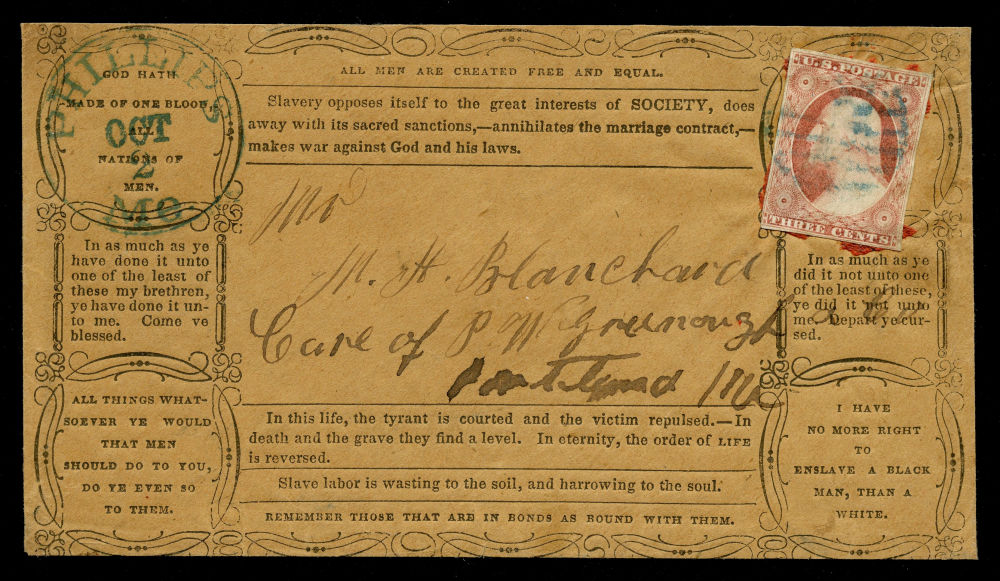 PHILLIPS
OCT
2
MO.
GOD HATH
MADE OF ONE BLOOD,
ALL
NATIONS OF
MEN.
ALL MEN ARE CREATED FREE AND EQUAL.
Slavery opposes itself to the great interests of SOCIETY, does
away with its sacred sanctions,—annihilates the marriage contract,—
makes war against God and his laws.
U.S. POSTAGE
THREE CENTS
In as much as ye
have done it unto
one of the least of
these my brethren,
ye have done it un-
to me. Come ye
blessed.
Mr
M. H. Blanchard
Care of P. W. Greenough
Portland Me
In as much as ye
did it not unto one
of the least of these,
ye did it not unto
me. Depart ye cur-
sed.
ALL THINGS WHAT-
SOEVER YE WOULD
THAT MEN
SHOULD DO TO YOU,
DO YE EVEN SO
TO THEM.
In this life, the tyrant is courted and the victim repulsed.—In
death and the grave they find a level. In eternity, the order of LIFE
is reversed.
Slave labor is wasting to the soil, and harrowing to the soul.
REMEMBER THOSE THAT ARE IN BONDS AS BOUND WITH THEM.
I HAVE
NO MORE RIGHT
TO
ENSLAVE A BLACK
MAN, THAN A
WHITE.